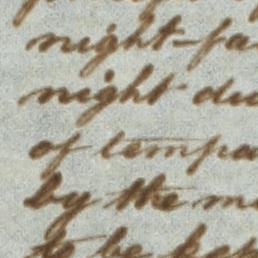 night-fa
night du
of tempa
by the m
to be kep